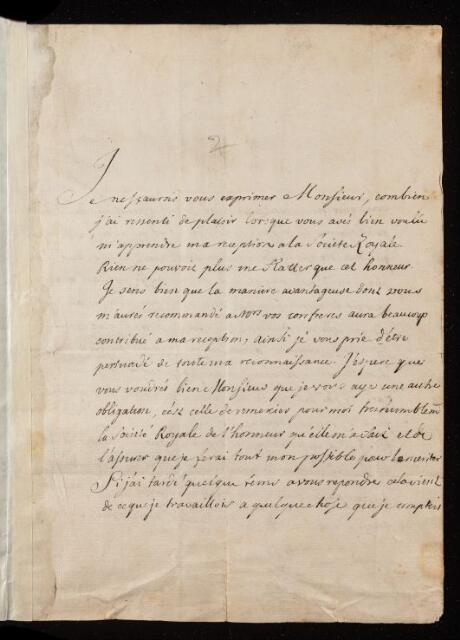 2
Je ne sçaurois vous exprimer Monsieur, combien
j'ai ressenti de plaisir lorsque vous avés bien voulu
m'apprendre ma reception a la Société Royale
Rien ne pouvoit plus me flatter que cet honneur
Je sens bien que la manière avantageuse dont vous
m'aurés recommandé a vos confreres aura beaucoup
contribué a ma reception; ainsi je vous prie d'être
persuadé de toute ma reconnoissance. J'espere que
vous voudrés bien Monsieur que je vous aye une autre
obligation, c'est celle de remercier pour moi
la Société Royale de l'honneur qu'elle m'a fait et de
l'assurer que je ferai tout mon possible pour le meriter
Si j'ai tardé quelque tems a vous repondre cela vient
de ce que je travaillois a quelque chose que je comptois